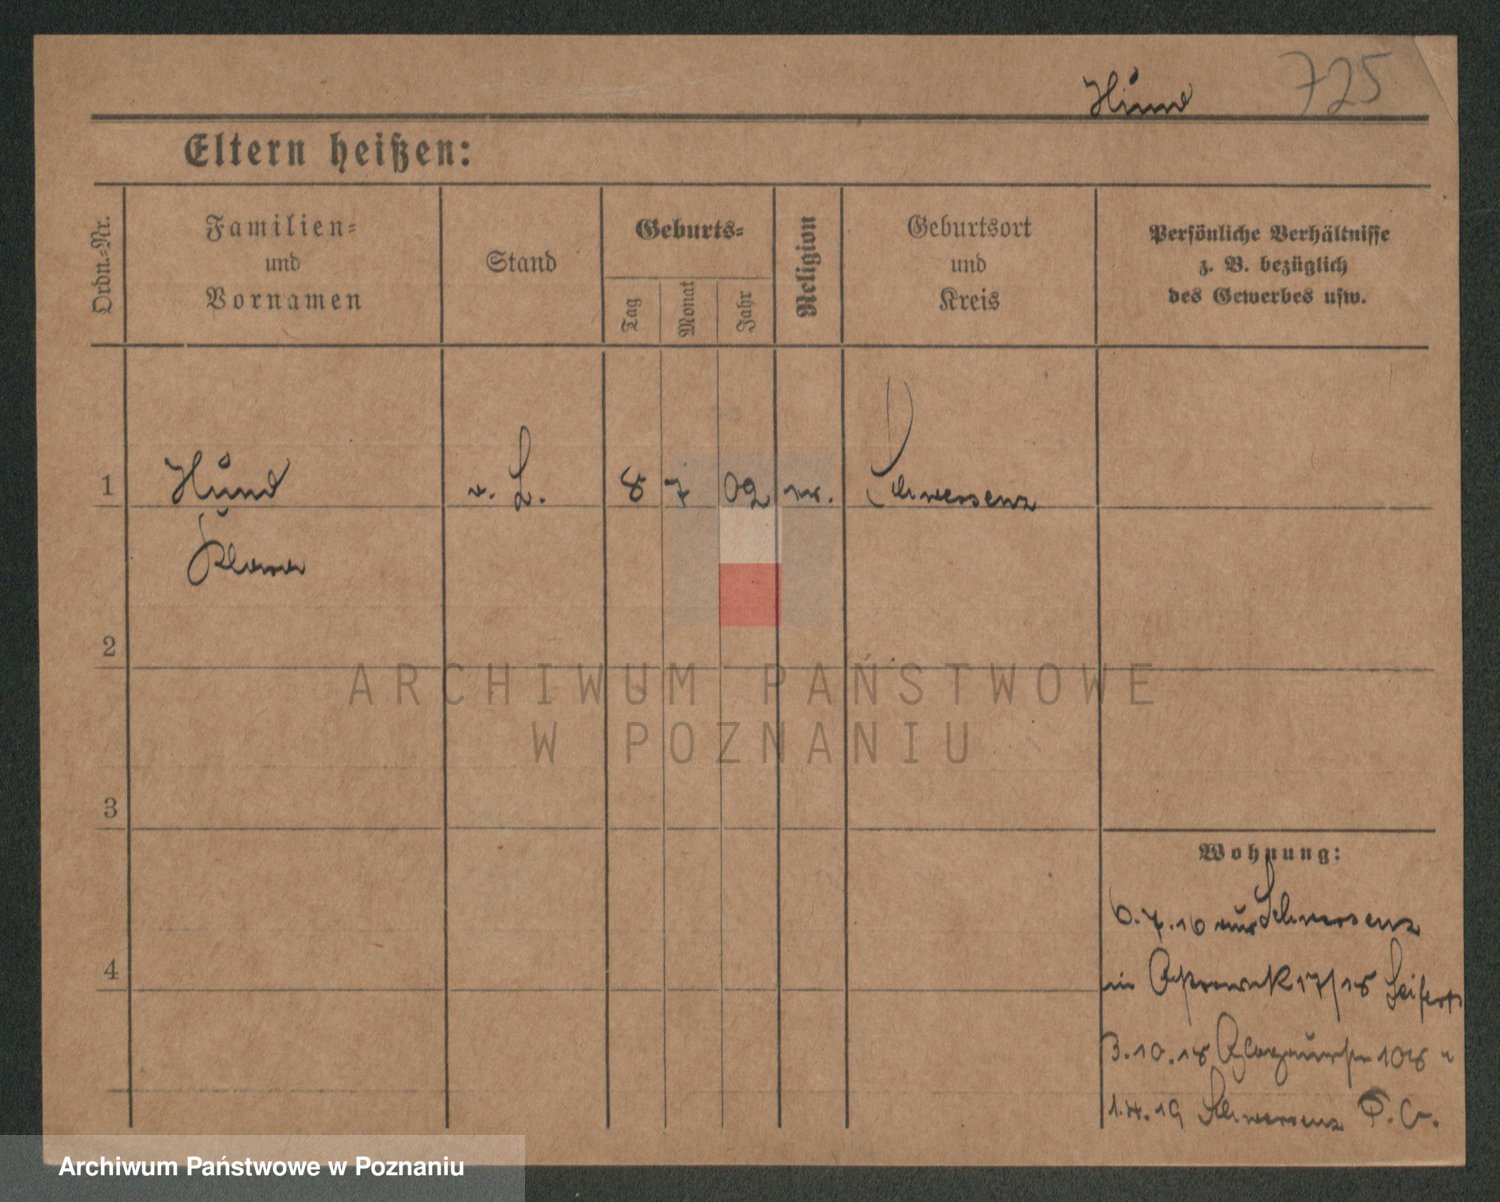 Hund 725
Eltern heißen:
Ordn.-Nr.
Familien-
und
Vornamen
Stand
Geburts-
Tag
Monat
Jahr
Religion
Geburtsort
und
Kreis
Persönliche Verhältnisse
z. B. bezüglich
des Gewerbes usw.
1 Hund 8 7 02 Schwersenz
Klara
2
ARCHIWUM PAŃSTWOWE
W POZNANIU
3
Wohnung:
6.7.16 aus Schwersenz
4
in 17/18 Seifert
3.10.18 108
1.4.19 Schwersenz
Archiwum Państwowe w Poznaniu